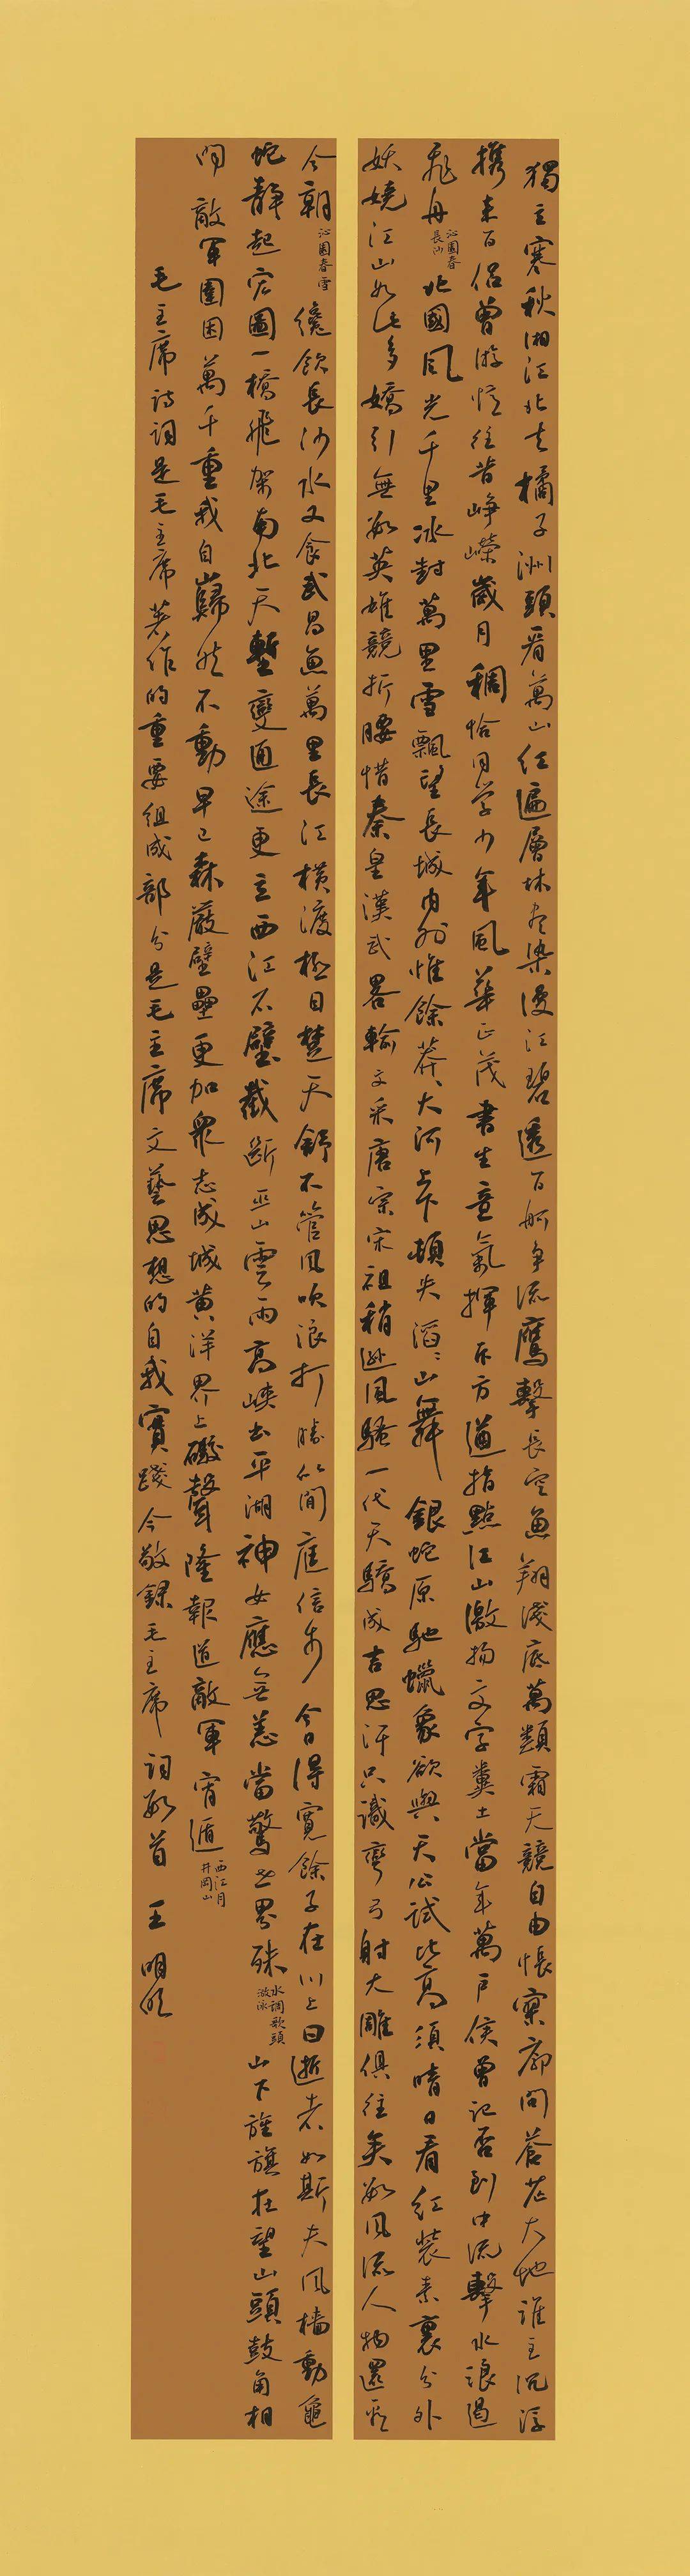 獨立寒秋湘江北去橘子洲頭看萬山紅遍層林盡染漫江碧透百舸爭流鷹擊長空魚翔淺底萬類霜天競自由悵寥廓問蒼茫大地誰主沉浮
攜來百侶曾游憶往昔崢嶸歲月稠恰同学少年風華正茂書生意氣揮斥方遒指點江山激揚文字糞土當年萬戶侯曾記否到中流擊水浪遏
飛舟 沁園春 長沙 北國風光千里冰封萬里雪飄望長城内外惟餘莽、大河上下頓失滔、山舞銀蛇原馳蠟象欲與天公試比高須晴日看紅裝素裹分外
妖嬈江山如此多嬌引無數英雄競折腰惜秦皇漢武畧輸文采唐宗宋祖稍遜風騷一代天驕成吉思汗只識彎弓射大雕俱往矣數風流人物還看
今朝 沁園春雪 纔飲長沙水又食武昌魚萬里長江橫渡極目楚天舒不管風吹浪打勝似閒庭信步今日得寬餘子在川上曰逝者如斯夫風檣動龜
蛇靜起宏圖一橋飛架南北天塹變通途更立西江石壁截斷巫山雲雨高峽出平湖神女應無恙當驚世界殊 水調歌頭 游泳 山下旌旗在望山頭鼓角相
聞敵軍圍困萬千重我自巋然不動早已森嚴壁壘更加眾志成城黄洋界上礮聲隆報道敵軍宵遁 西江月 井岡山
毛主席詩詞是毛主席著作的重要組成部分是毛主席文藝思想的自我實踐今敬録毛主席詞數首 王明